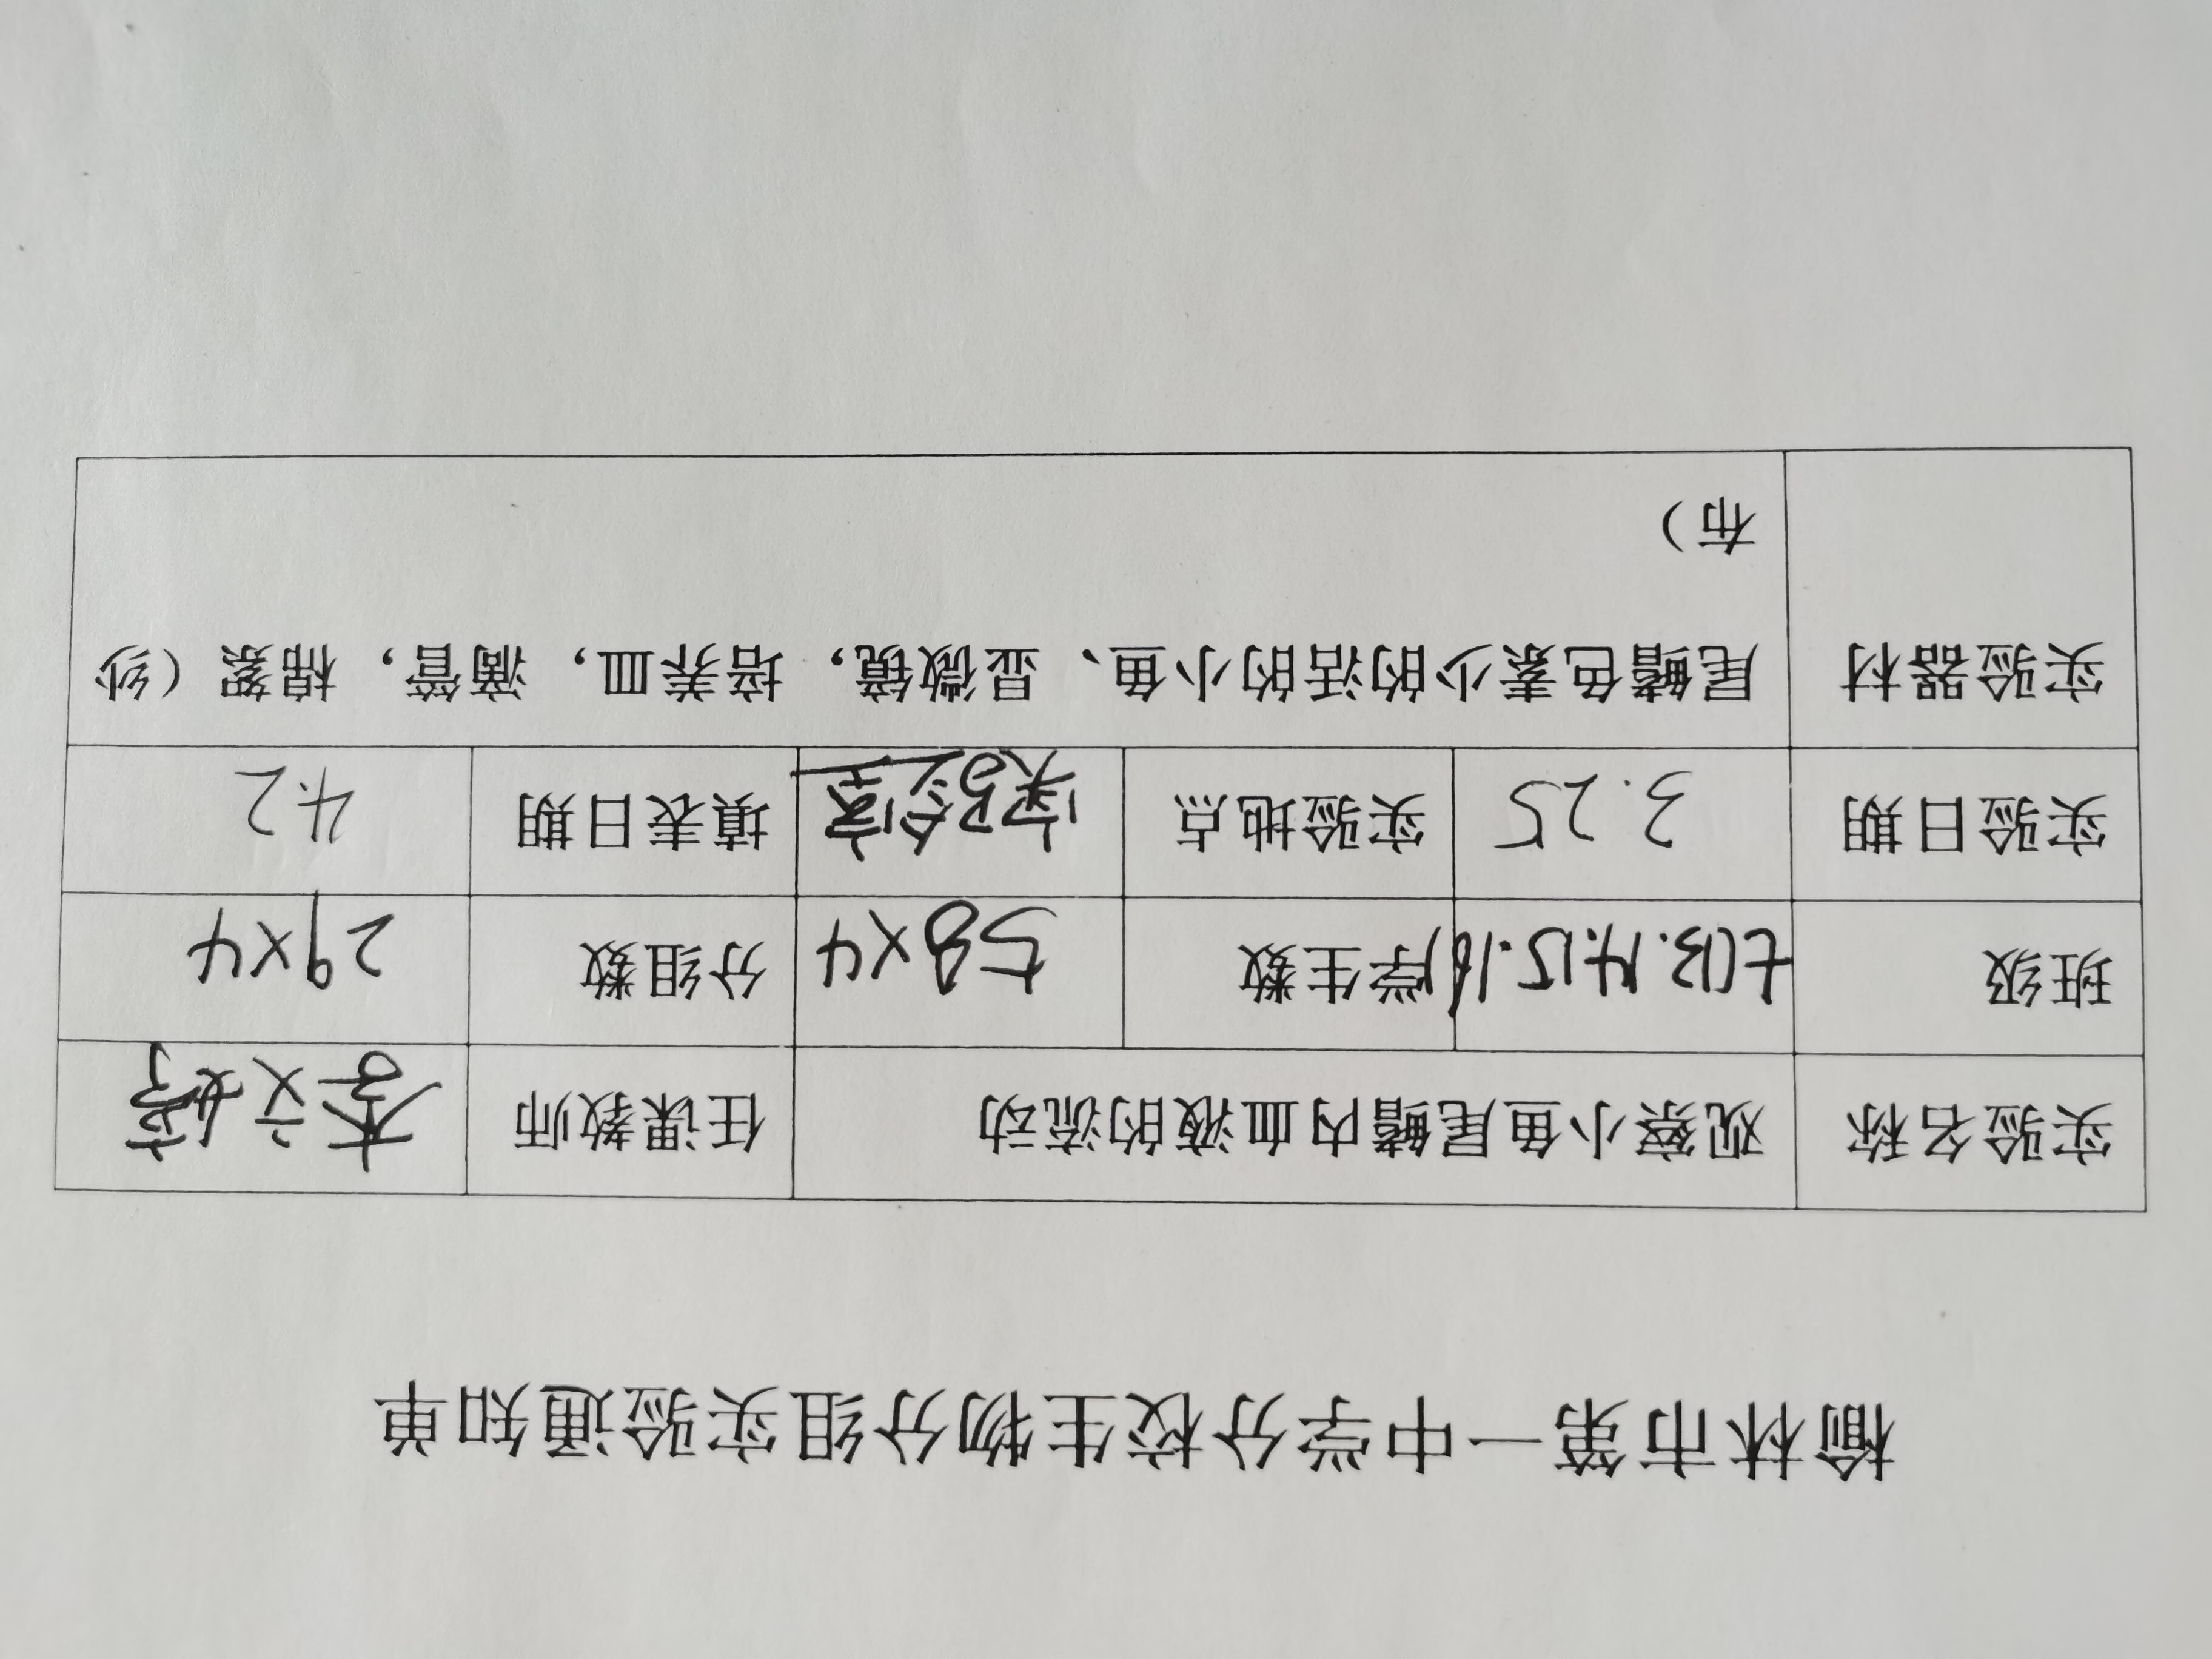 榆林市第一中学分校生物分组实验通知单
实验名称 观察小鱼尾鳍内血液的流动 任课教师 李文婷
班级 七(13.14.15.16) 学生数 58×4 分组数 29×4
实验日期 3.25 实验地点 实验室 填表日期 4.2
实验器材 尾鳍色素少的活的小鱼、显微镜，培养皿，滴管，棉絮（纱
布）